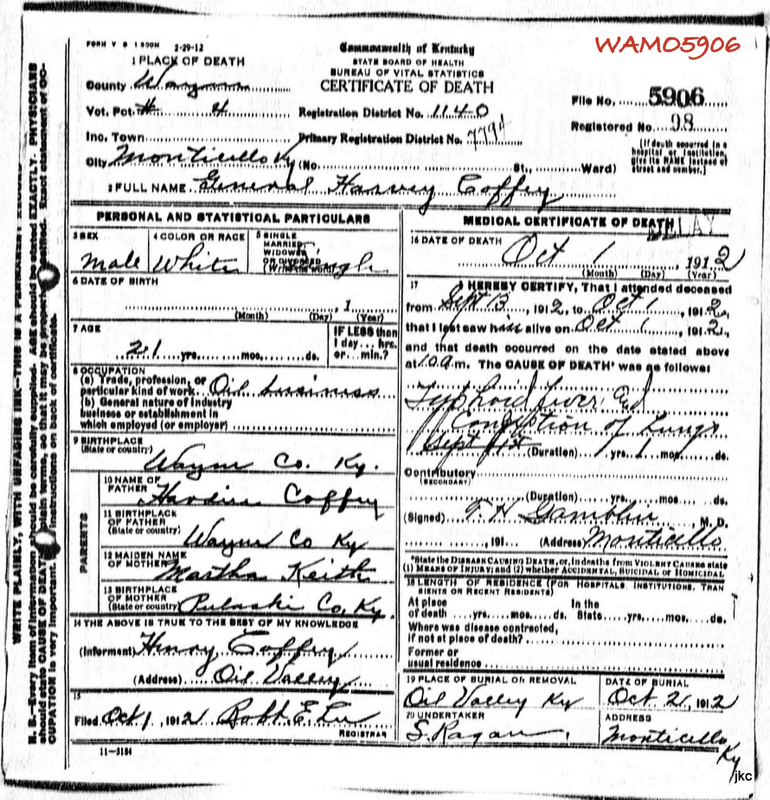 FORM V S 1 500M 2-29-12
Commonwealth of Kentucky
WAM05906
STATE BOARD OF HEALTH
BUREAU OF VITAL STATISTICS
CERTIFICATE OF DEATH
1 PLACE OF DEATH
County Wayne
Vot. Pct. # 4 Registration District No. 1140
File No. 5906
Registered No. 98
Inc. Town Primary Registration District No. 7794
(If death occurred in a hospital or institution, give its NAME instead of street and number.)
City Monticello Ky (No St., Ward)
2 FULL NAME General Harvey Coffey
PERSONAL AND STATISTICAL PARTICULARS
3 SEX Male
4 COLOR OR RACE White
5 SINGLE MARRIED WIDOWED OR DIVORCED (Write the word) Single
6 DATE OF BIRTH
, 1
(Month) (Day) (Year)
7 AGE
21 yrs. mos. ds.
IF LESS than 1 day hrs. or min.?
8 OCCUPATION
(a) Trade, profession, or particular kind of work Oil business
(b) General nature of industry business or establishment in which employed (or employer)
9 BIRTHPLACE (State or country) Wayne Co. Ky.
PARENTS
10 NAME OF FATHER Hardin Coffey
11 BIRTHPLACE OF FATHER (State or country) Wayne Co Ky
12 MAIDEN NAME OF MOTHER Martha Keith
13 BIRTHPLACE OF MOTHER (State or country) Pulaski Co, Ky.
14 THE ABOVE IS TRUE TO THE BEST OF MY KNOWLEDGE
(Informent) Henry Coffey
(Address) Oil Valley
15
Filed Oct 1, 1912 Robt E. Lee
REGISTRAR
11-3184
MEDICAL CERTIFICATE OF DEATH
16 DATE OF DEATH
Oct 1, 1912
(Month) (Day) (Year)
17 I HEREBY CERTIFY, That I attended deceased
from Sept 13, 1912, to Oct 1, 1912,
that I last saw him alive on Oct 1, 1912,
and that death occurred on the date stated above
at 10 a m. The CAUSE OF DEATH* was as follows:
Typhoid fever and
Congestion of Lungs
Sept (Duration) yrs. mos. ds.
Contributory
(SECONDARY)
(Duration) yrs. mos. ds.
(Signed) T. H. Gamblin, M. D.
, 191 (Address) Monticello
*State the DISEASE CAUSING DEATH, or, in deaths from VIOLENT CAUSES state (1) MEANS OF INJURY; and (2) whether ACCIDENTAL, SUICIDAL OR HOMICIDAL
18 LENGTH OF RESIDENCE (FOR HOSPITALS, INSTITUTIONS, TRANSIENTS OR RECENT RESIDENTS)
At place of death yrs. mos. ds. In the State yrs. mos. ds.
Where was disease contracted, if not at place of death?
Former or usual residence
19 PLACE OF BURIAL OR REMOVAL Oil Valley Ky
DATE OF BURIAL Oct. 2, 1912
20 UNDERTAKER S. Ragan
ADDRESS Monticello Ky
jkc